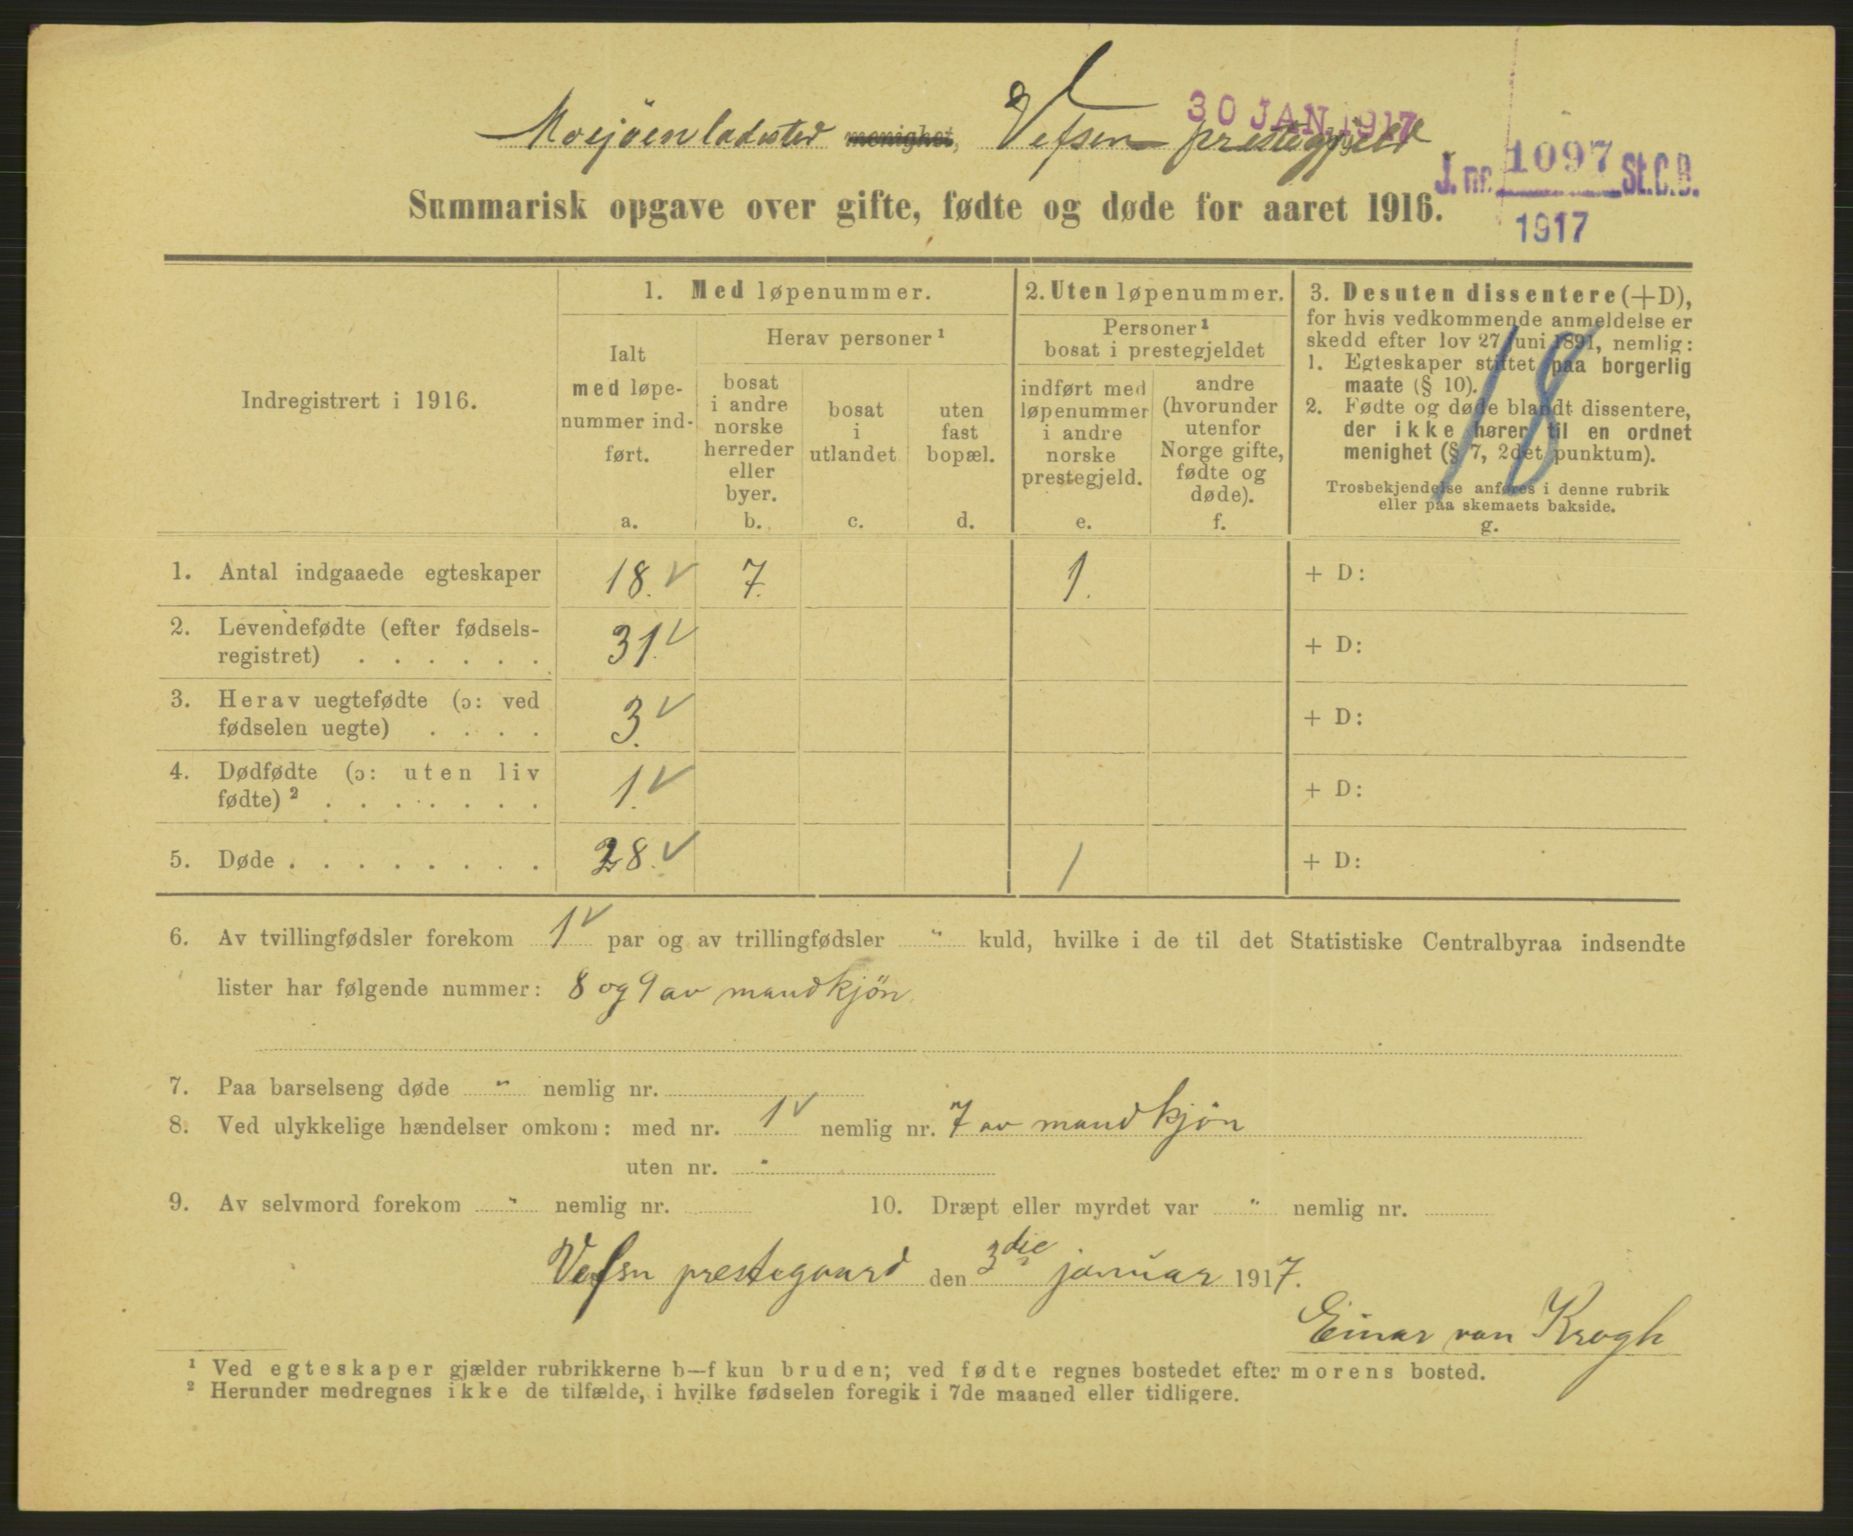 30 JAN. 1917
Mosjöen ladested menighet, Vefsen prestegjeld
J. nr. 1097 St.C.B.
1917
Summarisk opgave over gifte, fødte og døde for aaret 1916.
18
Indregistrert i 1916.
1. Med løpenummer.
Ialt
med løpe-
nummer ind-
ført.
a.
Herav personer ¹
bosat
i andre
norske
herreder
eller
byer.
b.
bosat
i
utlandet
c.
uten
fast
bopæl.
d.
2. Uten løpenummer.
Personer ¹
bosat i prestegjeldet
indført med
løpenummer
i andre
norske
prestegjeld.
e.
andre
(hvorunder
utenfor
Norge gifte,
fødte og
døde).
f.
3. Desuten dissentere (+D),
for hvis vedkommende anmeldelse er
skedd efter lov 27 juni 1891, nemlig:
1. Egteskaper stiftet paa borgerlig
maate (§ 10).
2. Fødte og døde blandt dissentere,
der ikke hører til en ordnet
menighet (§ 7, 2det punktum).
Trosbekjendelse anføres i denne rubrik
eller paa skemaets bakside.
g.
1. Antal indgaaede egteskaper 18. ✓ 7. 1. + D:
2. Levendefødte (efter fødsels-
registret) . . . . . . 31. ✓ + D:
3. Herav uegtefødte (ɔ: ved
fødselen uegte) . . . . 3. ✓ + D:
4. Dødfødte (ɔ: uten liv
fødte) ² . . . . . . . 1. ✓ + D:
5. Døde . . . . . . . . 28. ✓ 1 + D:
6. Av tvillingfødsler forekom 1 ✓ par og av trillingfødsler " kuld, hvilke i de til det Statistiske Centralbyraa indsendte
lister har følgende nummer: 8 og 9 av mandkjön.
7. Paa barselseng døde " nemlig nr.
8. Ved ulykkelige hændelser omkom: med nr. 1 ✓ nemlig nr. 7 av mandkjön
uten nr. "
9. Av selvmord forekom " nemlig nr. 10. Dræpt eller myrdet var " nemlig nr.
Vefsn prestegaard den 3die januar 1917.
Einar von Krogh
¹ Ved egteskaper gjælder rubrikkerne b—f kun bruden; ved fødte regnes bostedet efter morens bosted.
² Herunder medregnes ikke de tilfælde, i hvilke fødselen foregik i 7de maaned eller tidligere.